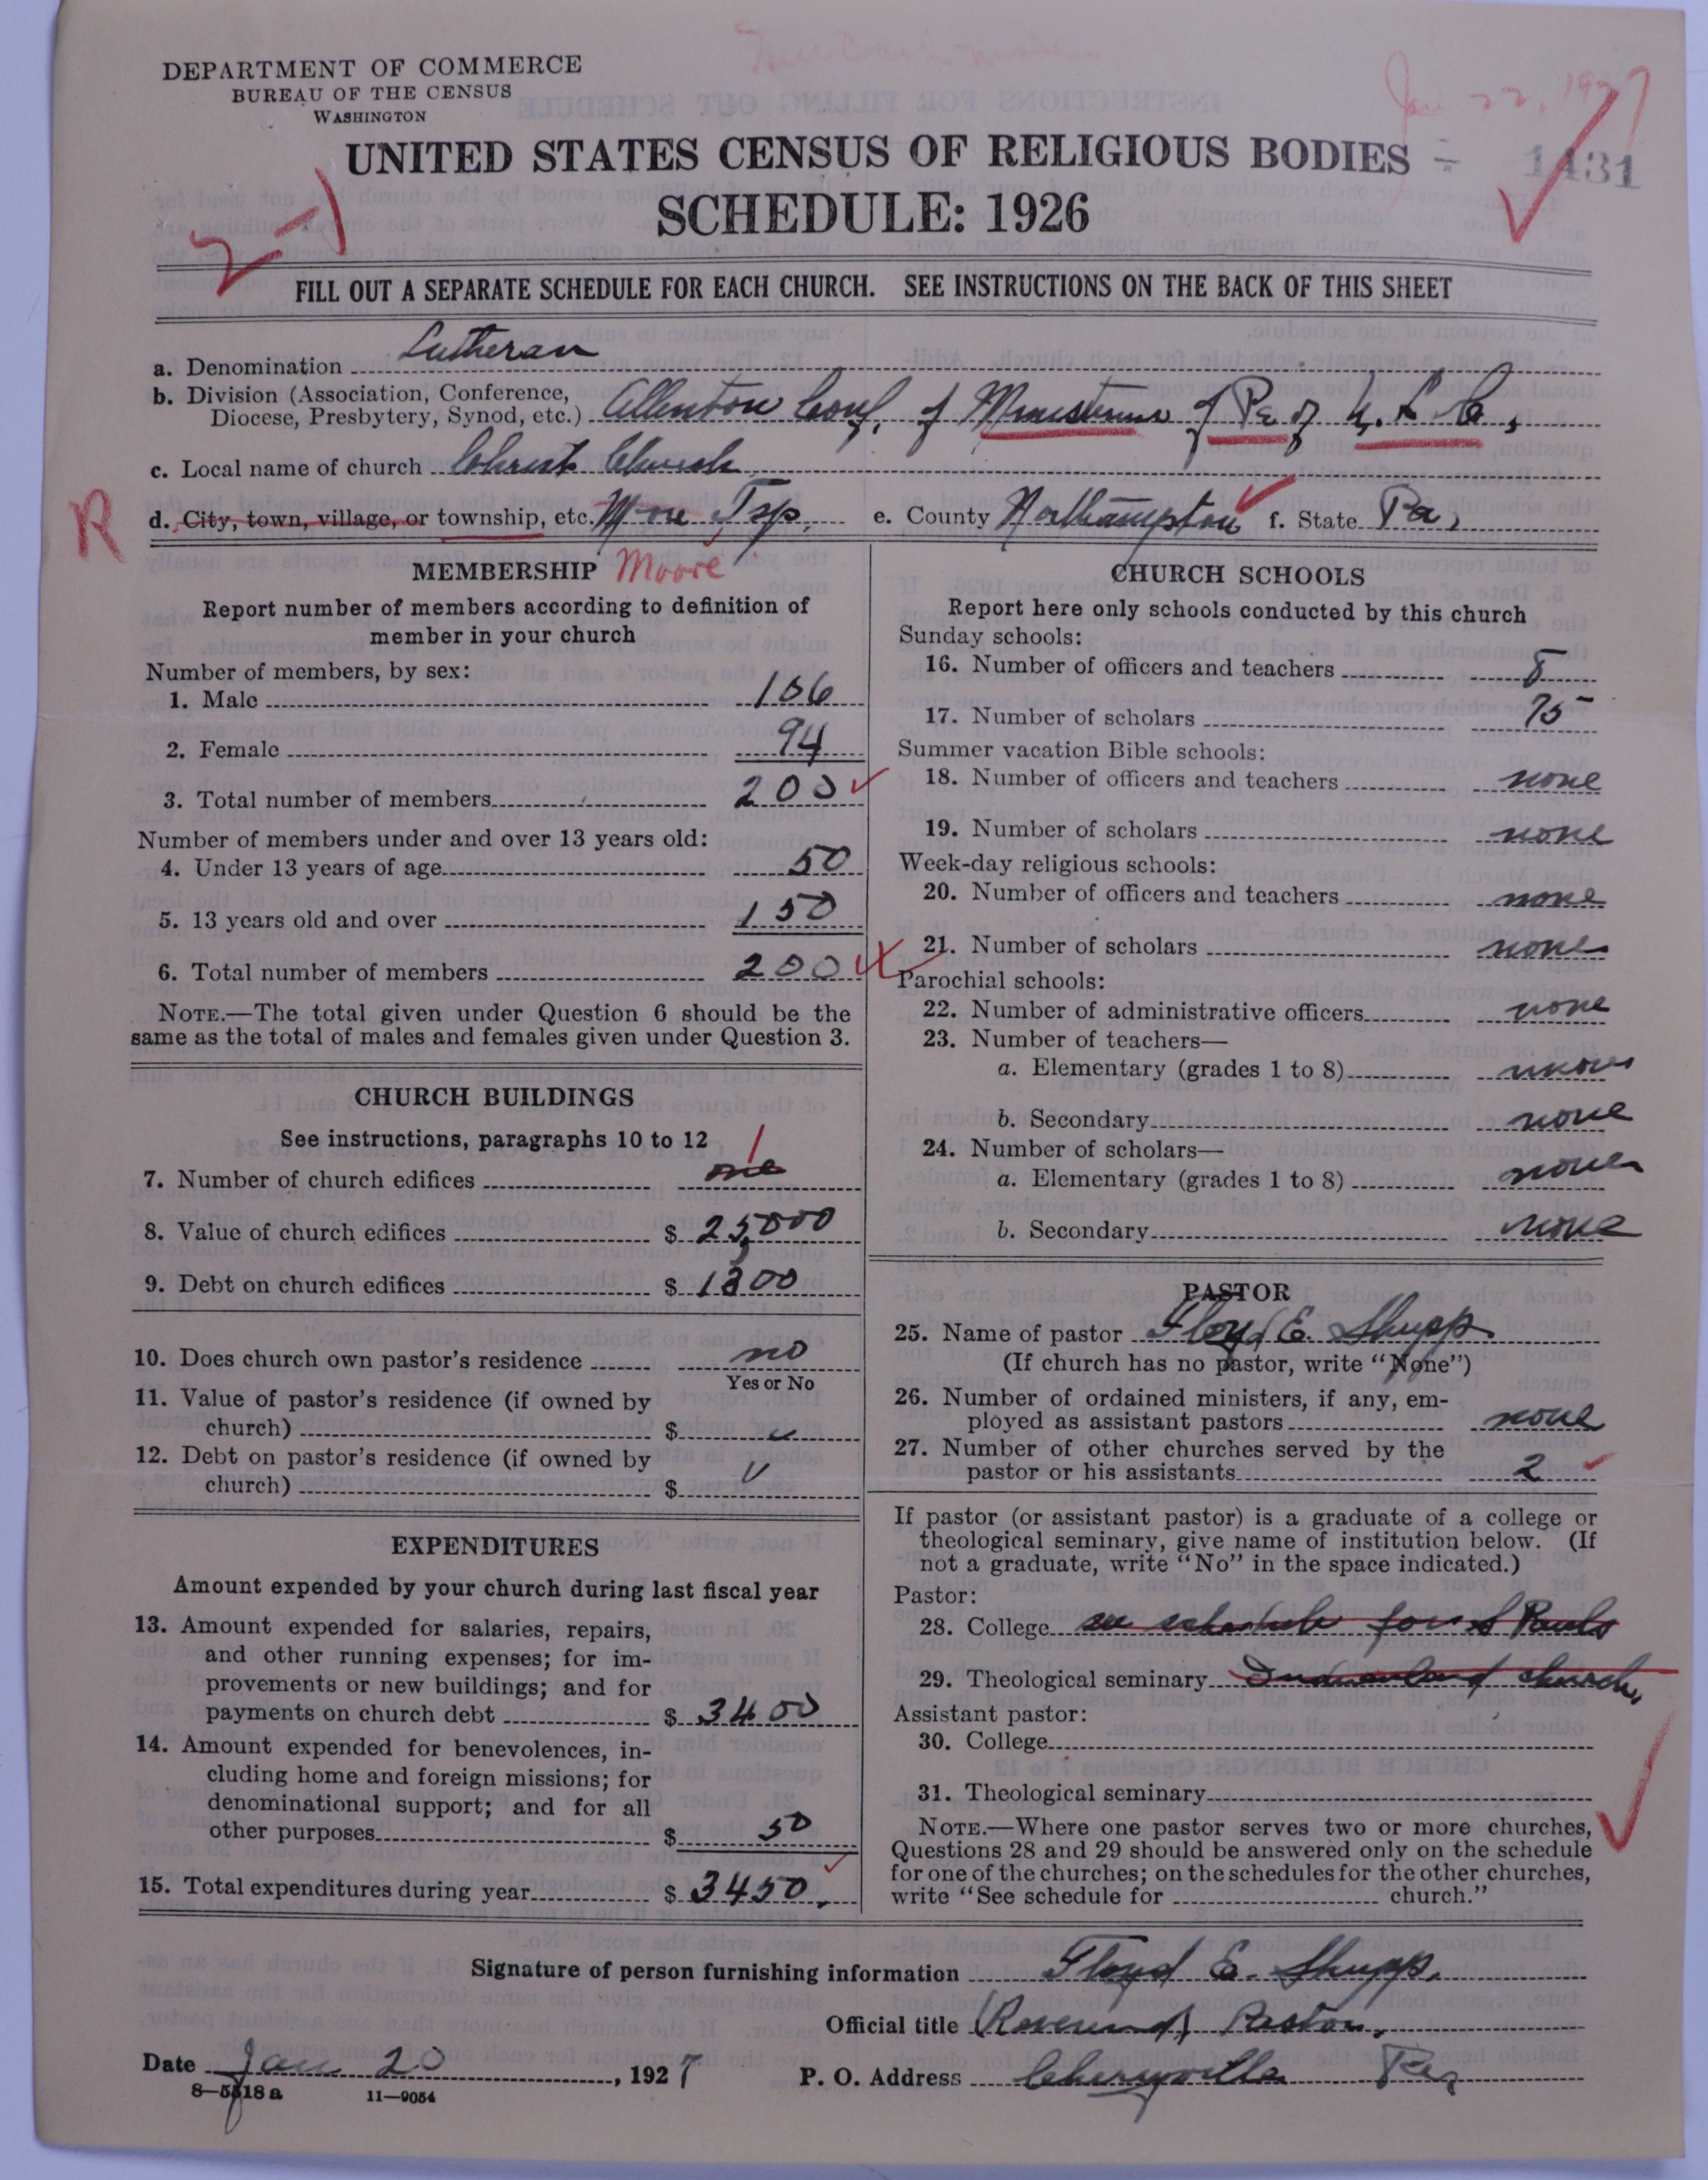 DEPARTMENT OF COMMERCE
BUREAU OF THE CENSUS
WASHINGTON
Jan 22, 1927
UNITED STATES CENSUS OF RELIGIOUS BODIES
1431
SCHEDULE: 1926
2-1
FILL OUT A SEPARATE SCHEDULE FOR EACH CHURCH. SEE INSTRUCTIONS ON THE BACK OF THIS SHEET
a. Denomination Lutheran
b. Division (Association, Conference,
Diocese, Presbytery, Synod, etc.) Allentown Conf. of Ministerium of Pa of U. L. C.
c. Local name of church Christ Church
R d. City, town, village, or township, etc. More Tsp. e. County Northampton f. State Pa.
MEMBERSHIP Moore
Report number of members according to definition of
member in your church
Number of members, by sex:
1. Male 106
2. Female 94
3. Total number of members 200
Number of members under and over 13 years old:
4. Under 13 years of age 50
5. 13 years old and over 150
6. Total number of members 200
NOTE.—The total given under Question 6 should be the
same as the total of males and females given under Question 3.
CHURCH BUILDINGS
See instructions, paragraphs 10 to 12
7. Number of church edifices one 1
8. Value of church edifices $ 25,000
9. Debt on church edifices $ 1300
10. Does church own pastor's residence no
Yes or No
11. Value of pastor's residence (if owned by
church) $
12. Debt on pastor's residence (if owned by
church) $
EXPENDITURES
Amount expended by your church during last fiscal year
13. Amount expended for salaries, repairs,
and other running expenses; for im-
provements or new buildings; and for
payments on church debt $ 3400
14. Amount expended for benevolences, in-
cluding home and foreign missions; for
denominational support; and for all
other purposes $ 50
15. Total expenditures during year $ 3450.
CHURCH SCHOOLS
Report here only schools conducted by this church
Sunday schools:
16. Number of officers and teachers 8
17. Number of scholars 75
Summer vacation Bible schools:
18. Number of officers and teachers none
19. Number of scholars none
Week-day religious schools:
20. Number of officers and teachers none
21. Number of scholars none
Parochial schools:
22. Number of administrative officers none
23. Number of teachers—
a. Elementary (grades 1 to 8) none
b. Secondary none
24. Number of scholars—
a. Elementary (grades 1 to 8) none
b. Secondary none
PASTOR
25. Name of pastor Floyd E. Shupp
(If church has no pastor, write "None")
26. Number of ordained ministers, if any, em-
ployed as assistant pastors none
27. Number of other churches served by the
pastor or his assistants 2
If pastor (or assistant pastor) is a graduate of a college or
theological seminary, give name of institution below. (If
not a graduate, write "No" in the space indicated.)
Pastor:
28. College see schedule for St Pauls
29. Theological seminary Indianland church.
Assistant pastor:
30. College
31. Theological seminary
NOTE.—Where one pastor serves two or more churches,
Questions 28 and 29 should be answered only on the schedule
for one of the churches; on the schedules for the other churches,
write "See schedule for church."
Signature of person furnishing information Floyd E. Shupp.
Official title (Reverend) Pastor.
Date Jan 20, 1927 P. O. Address Cherryville Pa,
8—5518a 11—9054